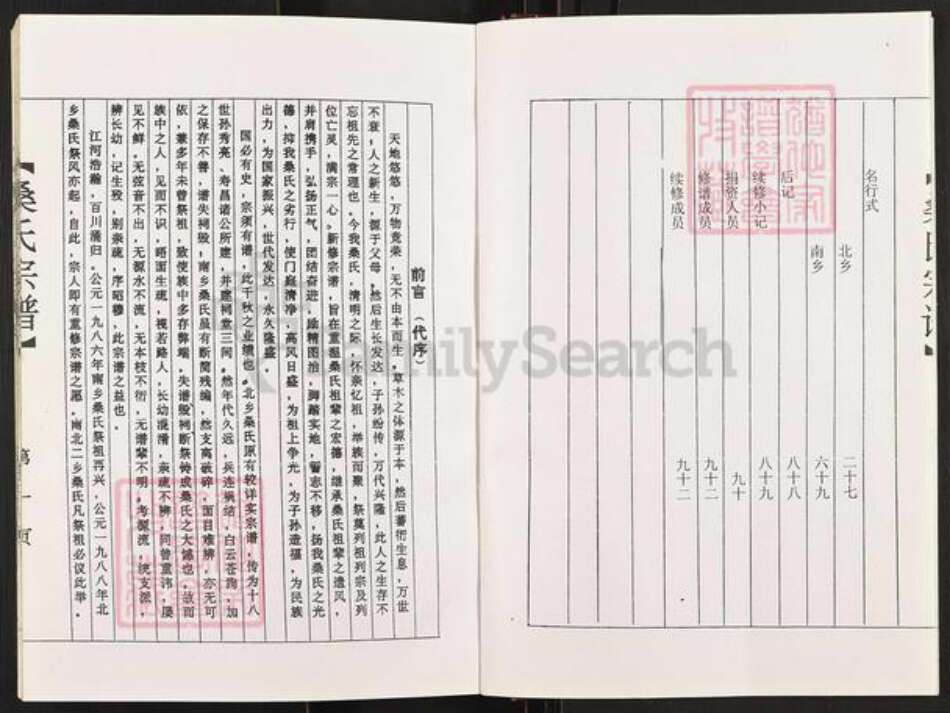 名行式
北乡 二十七
南乡 六十九
后记 八十八
续修小记 八十九
捐资人员 九十
修谱成员 九十二
续修成员 九十二
前言（代序）
天地悠悠，万物竞荣，无不由本而生。草木之体源于本，然后蕃衍生息，万世
不衰，人之新生，源于父母，然后生长发达，子孙纷传，万代兴隆，此人之生存不
忘祖先之常理也。今我桑氏，清明之际，怀亲忆祖，举族而聚，祭奠列祖列宗及列
位亡灵，满宗一心。新修宗谱，旨在重温桑氏祖辈之宏德，继承桑氏祖辈之遗风，
并肩携手，弘扬正气，团结奋进，励精图治，脚踏实地，誓志不移，扬我桑氏之光
德，抑我桑氏之劣行，使门庭清净，高风日盛，为祖上争光，为子孙造福，为民族
出力，为国家振兴，世代发达，永久隆盛。
国必有史，宗须有谱，此千秋之业绩也。北乡桑氏原有较详实宗谱，传为十八
世孙秀亮、寿昌诸公所建，并建祠堂三间。然年代久远，兵连祸结，白云苍狗，加
之保存不善，谱失祠毁，南乡桑氏虽有断简残编，然支离破碎，面目难辨，亦无可
依，兼多年未曾祭祖，致使族中多存弊端，失谱毁祠断祭铸成桑氏之大憾也，故而
族中之人，见而不识，晤面生疏，视若路人，长幼混淆，亲疏不辨，同曾重讳，屡
见不鲜。无弦音不出，无源水不流，无本枝不衍，无谱辈不明。考源流，统支派，
辨长幼，记生殁，别亲疏，序昭穆，此宗谱之益也。
江河浩瀚，百川流归。公元一九八六年南乡桑氏祭祖再兴，公元一九八八年北
乡桑氏祭风亦起，自此，宗人即有重修宗谱之愿。南北二乡桑氏凡祭祖必议此举。
【桑氏宗谱】
第一页
FamilySearch